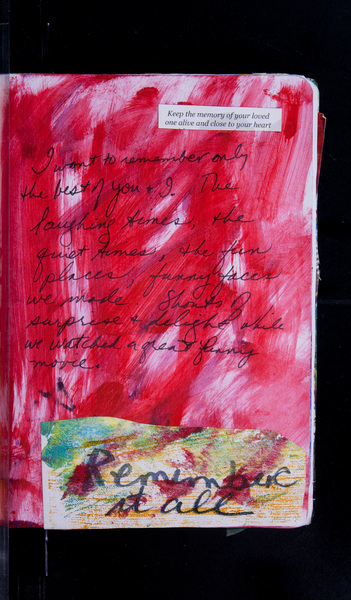 Keep the memory of your loved
one alive and close to your heart
I want to remember only
the best of you & I. The
laughing times, the
quiet times, the fun
places, funny faces
we made. Shouts of
surprise & delight while
we watched a great funny
movie.
Remember
it all